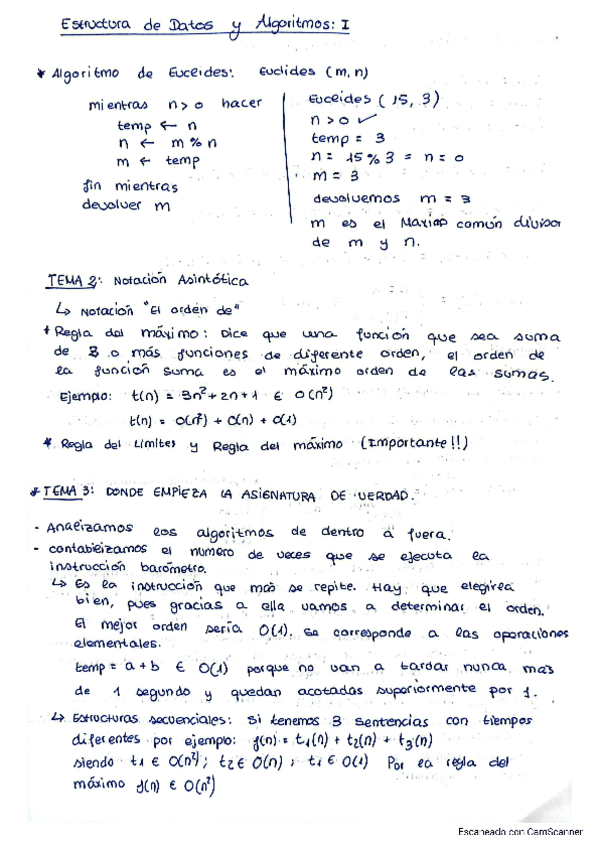 Estructura de Datos y Algoritmos: I
* Algoritmo de Euclides: Euclides (m, n)
mientras n > 0 hacer
temp ← n
n ← m % n
m ← temp
fin mientras
devolver m
Euclides (15, 3)
n > 0 ✓
temp = 3
n = 15 % 3 = n = 0
m = 3
devolvemos m = 3
m es el Maximo común divisor
de m y n.
TEMA 2: Notación Asintótica
↳ Notación "El orden de"
* Regla del máximo: Dice que una función que sea suma
de 2 o más funciones de diferente orden, el orden de
la función suma es el máximo orden de las sumas.
Ejemplo: t(n) = 3n² + 2n + 1 ∈ O(n²)
t(n) = O(n²) + O(n) + O(1)
* Regla del Límites y Regla del máximo (Importante!!)
* TEMA 3: DONDE EMPIEZA LA ASIGNATURA DE VERDAD.
- Analizamos los algoritmos de dentro a fuera.
- contabilizamos el numero de veces que se ejecuta la
instrucción barómetro.
↳ Es la instrucción que más se repite. Hay que elegirla
bien, pues gracias a ella vamos a determinar el orden.
El mejor orden sería O(1). Se corresponde a las operaciones
elementales.
temp = a + b ∈ O(1) porque no van a tardar nunca más
de 1 segundo y quedan acotadas superiormente por 1.
↳ Estructuras secuenciales: Si tenemos 3 sentencias con tiempos
diferentes por ejemplo: f(n) = t1(n) + t2(n) + t3(n)
siendo t1 ∈ O(n²); t2 ∈ O(n); t1 ∈ O(1) Por la regla del
máximo f(n) ∈ O(n²)
Escaneado con CamScanner